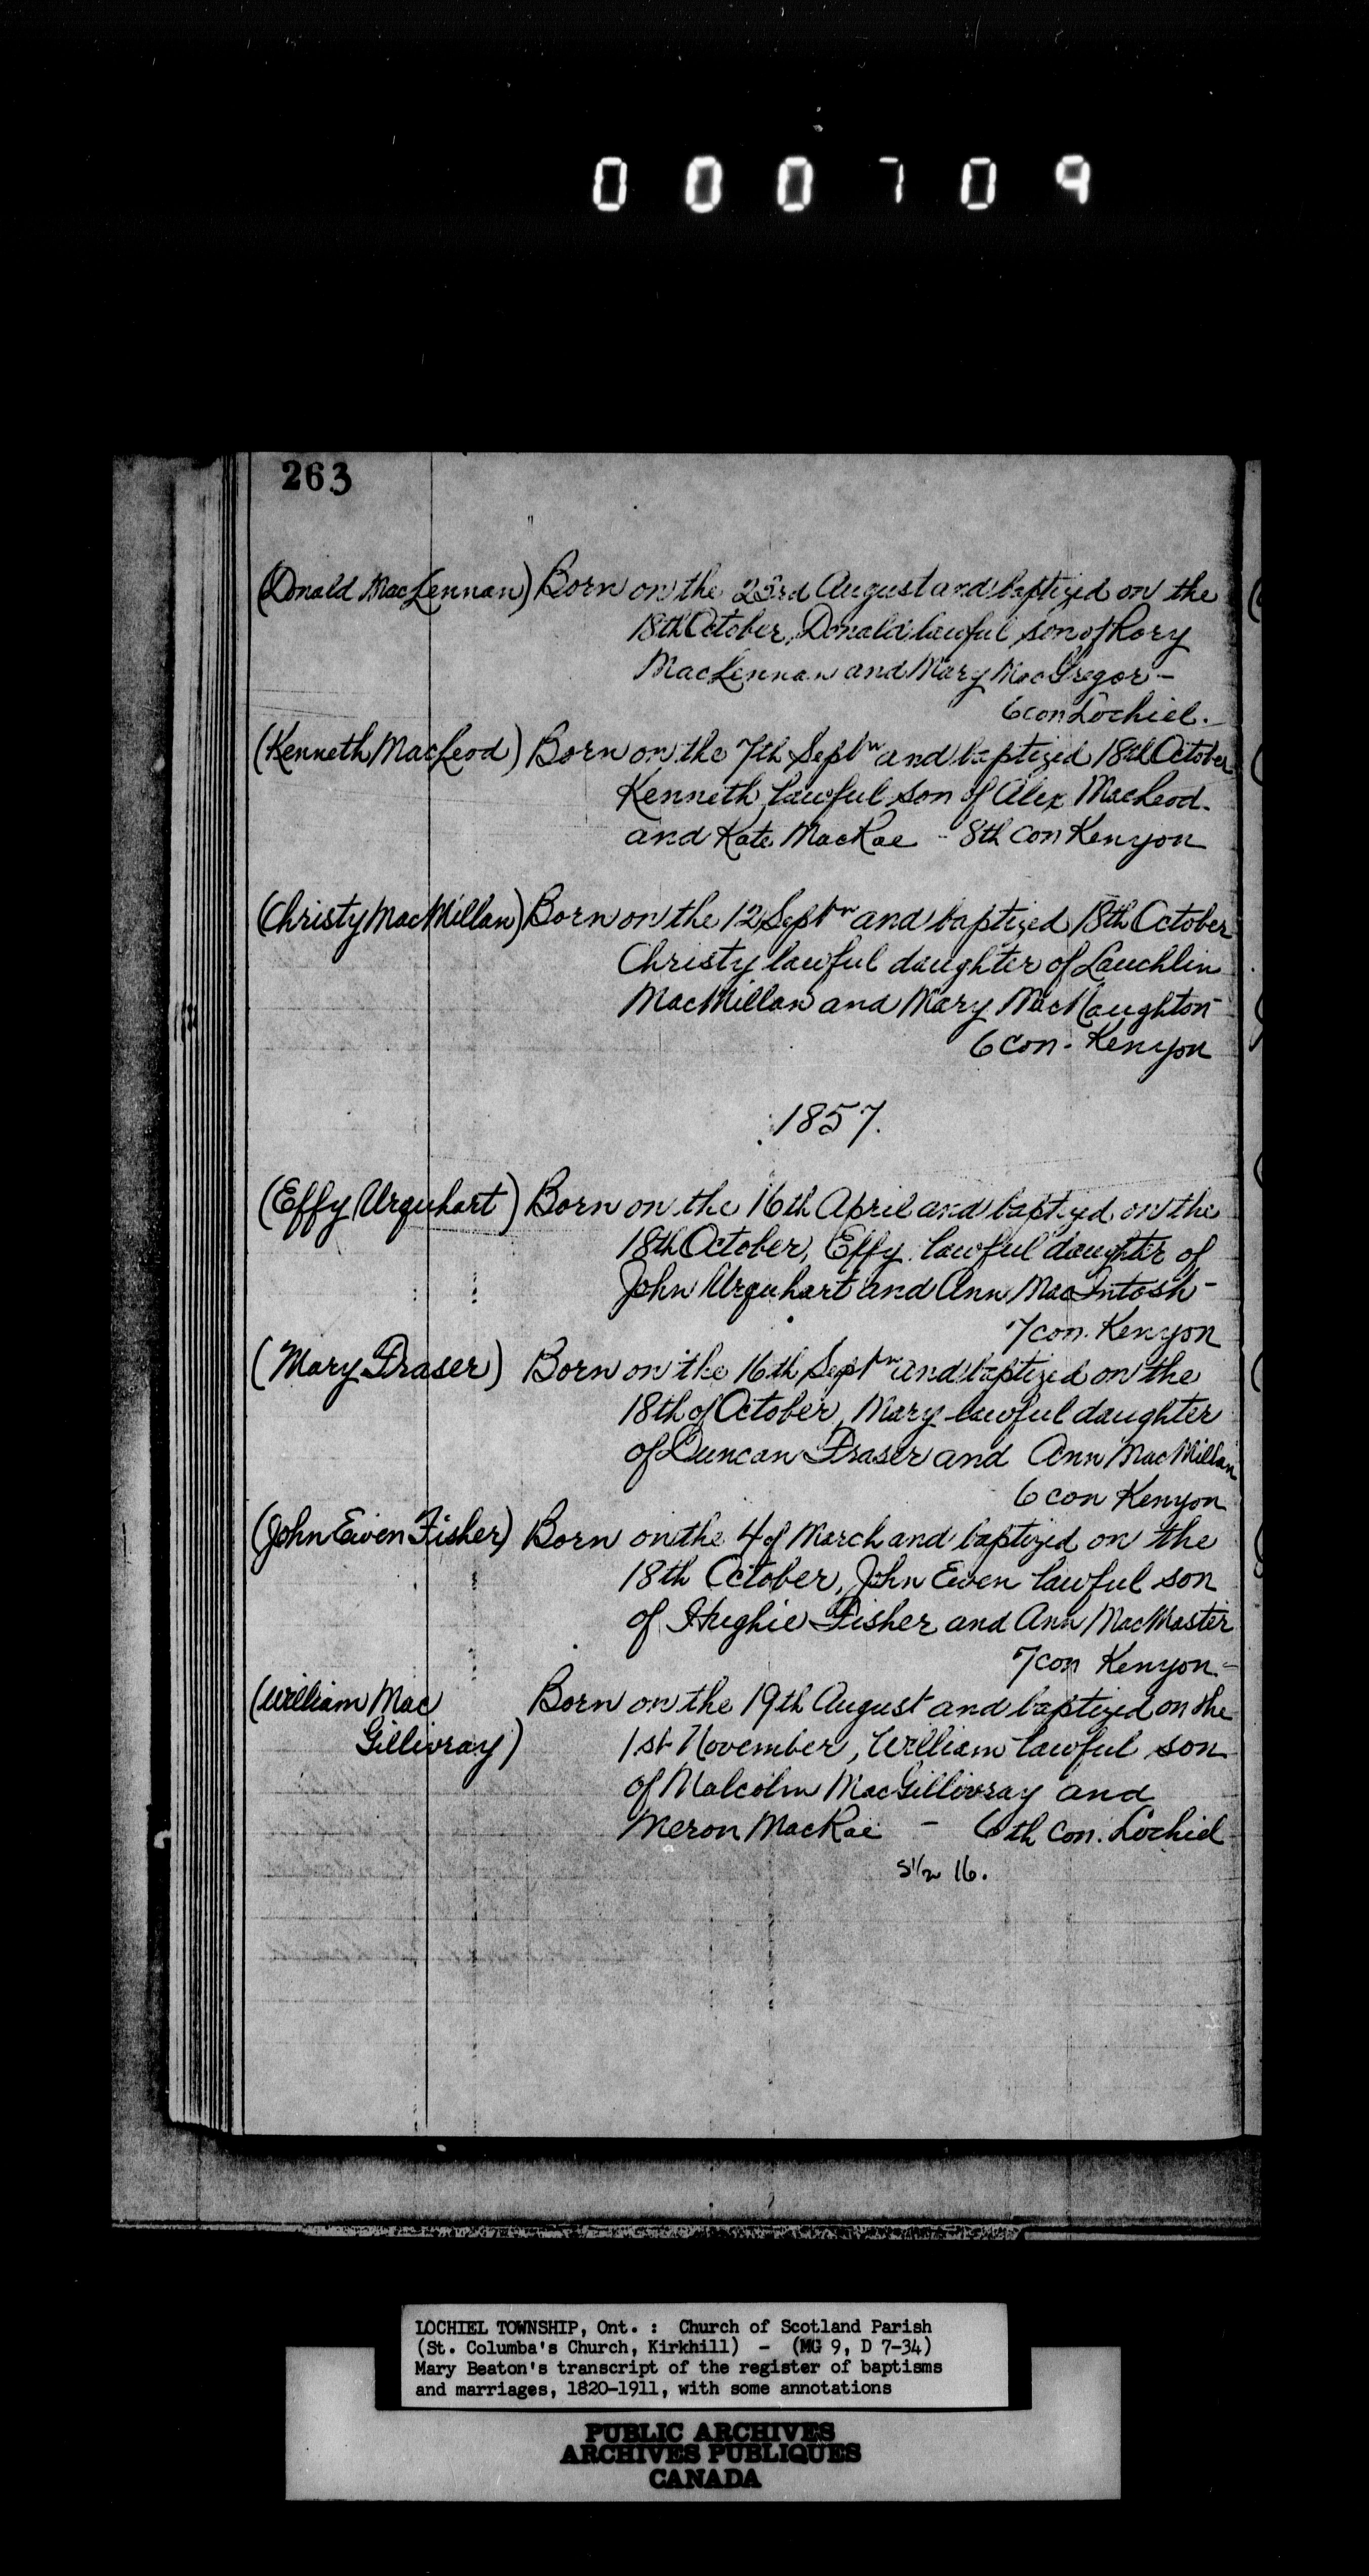 000709
263
(Donald MacLennan) Born on the 23rd August and baptized on the
18th October, Donald lawful son of Rory
MacLennan and Mary MacGregor -
6 con Lochiel.
(Kenneth MacLeod) Born on the 7th Septr and baptized 18th October
Kenneth, lawful son of Alex MacLeod.
and Kate MacRae - 8th con Kenyon
(Christy MacMillan) Born on the 12 Septr and baptized 18th October
Christy lawful daughter of Lauchlin
MacMillan and Mary MacNaughton -
6 con - Kenyon
1857.
(Effy Urquhart) Born on the 16th April and baptized on the
18th October, Effy lawful daughter of
John Urquhart and Ann MacIntosh -
7 con. Kenyon
(Mary Fraser) Born on the 16th Septr and baptized on the
18th of October, Mary lawful daughter
of Duncan Fraser and Ann MacMillan
6 con Kenyon
(John Ewen Fisher) Born on the 4 of March and baptized on the
18th October, John Ewen lawful son
of Hughie Fisher and Ann MacMaster
7 con Kenyon -
(William Mac Born on the 19th August and baptized on the
Gillivray) 1st November, William lawful son
of Malcolm MacGillivray and
Meron MacRae - 6th Con. Lochiel
S 1/2 16.
LOCHIEL TOWNSHIP, Ont. : Church of Scotland Parish
(St. Columba's Church, Kirkhill) - (MG 9, D 7-34)
Mary Beaton's transcript of the register of baptisms
and marriages, 1820-1911, with some annotations
PUBLIC ARCHIVES
ARCHIVES PUBLIQUES
CANADA